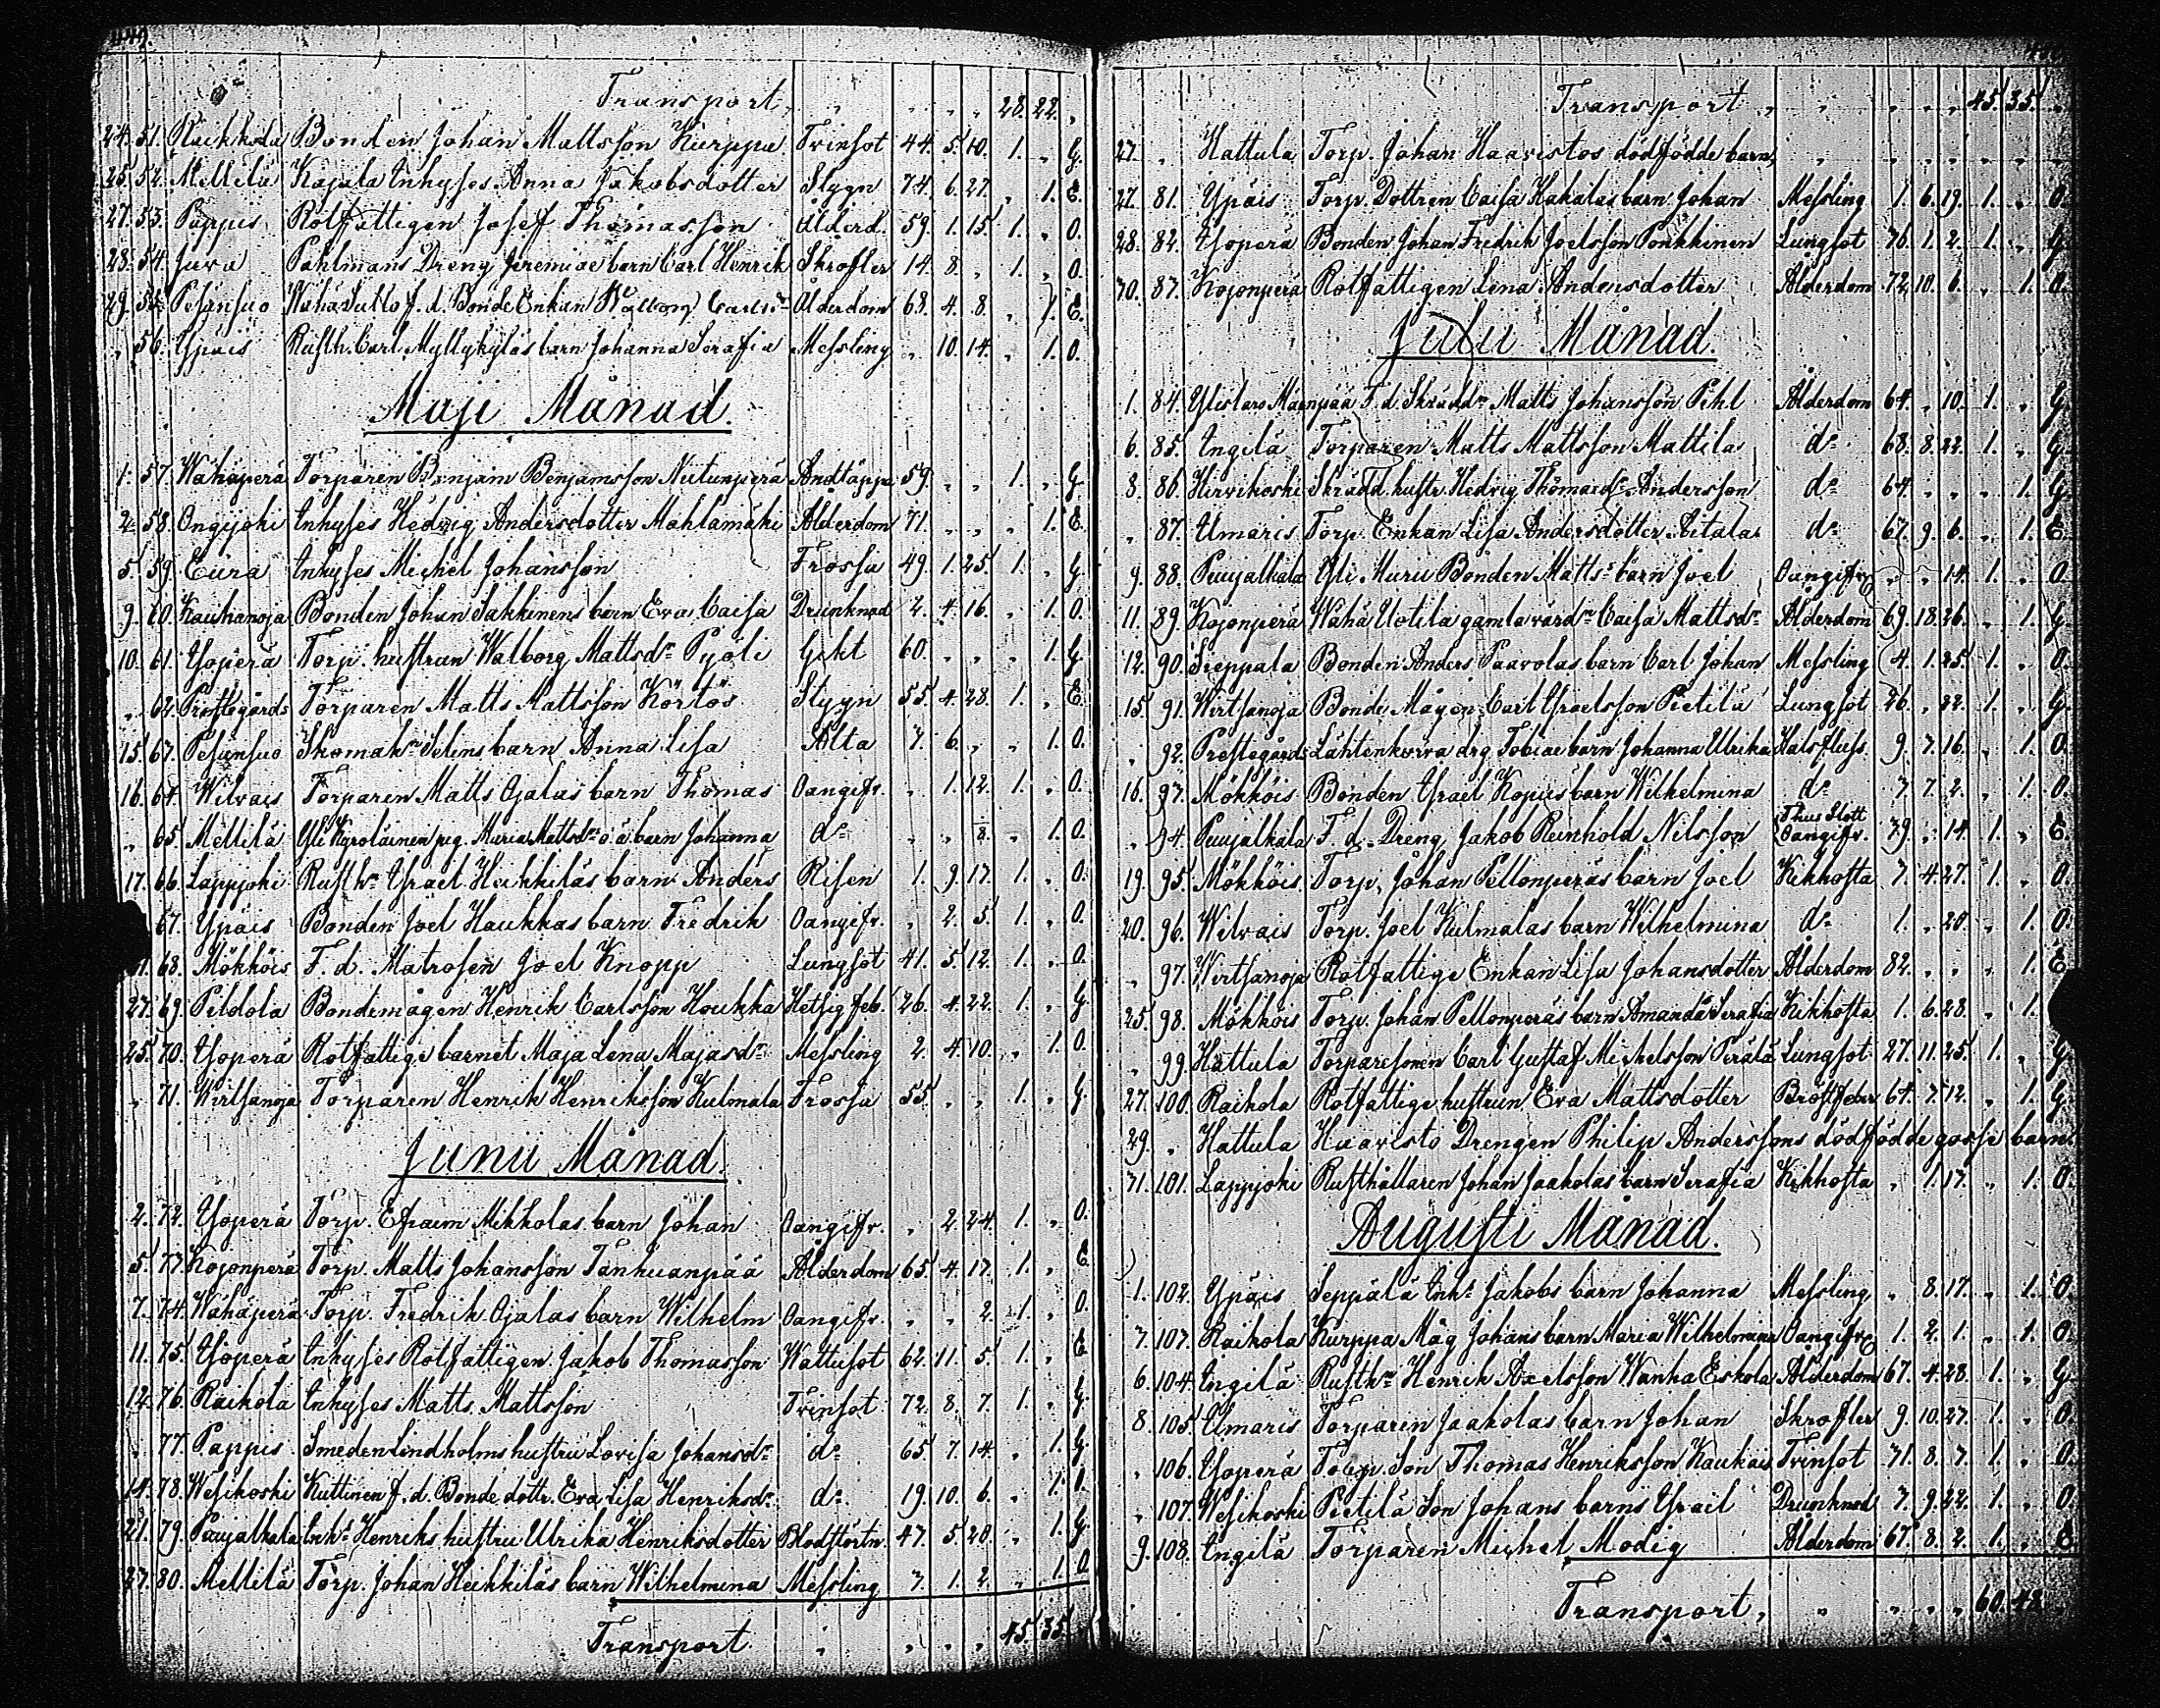 Transport. " " " " 28. 22. "
24. 51. Raikkola Bonden Johan Mattsson Kurppa Tvinsot 44. 5. 10. 1. " G.
25. 52. Mellilä Kajala Inhyses Anna Jakobsdotter Stygn 74. 6. 27. " 1. E.
27. 53. Pappis Rotfattigen Josef Thomasson Ålderd. 59. 1. 15. 1. " O.
28. 54. Juva Pahlmans Dreng Jeremiae barn Carl Henrik Skrofler 14. 8. " 1. " O.
29. 55. Pesänsuo f. d. Bonde Enkan Walborg Carlsdr Ålderdom 68. 4. 8. " 1. E.
" 56. Ypäis Rusth. Carl Myllykyläs barn Johanna Serafia Messling " 10. 14. " 1. O.
Maji Månad.
1. 57. Wähäperä Torparen Benjam Benjamsson Niitunperä Andtäppa 59. " " 1. " G.
2. 58. Ongijoki Inhyses Hedvig Andersdotter Mahlamäki Ålderdom 71. " " " 1. E.
5. 59. Eura Inhyses Michel Johansson Frossa 49. 1. 25. 1. " G.
9. 60. Kauhanoja Bonden Johan Sakkinens barn Eva Caisa Drunknad 2. 4. 16. " 1. O.
10. 61. Ysoperä Torp. hustrun Walborg Mattsdr Pyöli Gikt 60. " " " 1. G.
" 62. Prestegårds Torparen Matts Mattsson Körtös Stygn 55. 4. 28. 1. " E.
15. 63. Pesänsuo Skomakrn Selins barn Anna Lisa Alta 3. 6. " " 1. O.
16. 64. Wilvais Torparen Matts Ojalas barn Thomas Oangifv. " 1. 12. 1. " O.
" 65. Mellilä Yli Kyrolainen pig. Maria Mattsdrs o. ä. barn Johanna do " " 8. " 1. O.
17. 66. Lappjoki Rusthn Israel Heikkiläs barn Anders Risen 1. 9. 17. 1. " O.
67. Ypäis Bonden Joel Haukkas barn Fredrik Oangifv. " 2. 5. 1. " O.
21. 68. Mökköis F. d. Matrosen Joel Knopp Lungsot 41. 5. 12. 1. " O.
23. 69. Pildola Bondemågen Henrik Carlsson Houkka Hetsig feb. 26. 4. 22. 1. " G.
25. 70. Ysoperä Rotfattige barnet Maja Lena Majasdr Messling 2. 4. 10. " 1. O.
" 71. Wirtsanoja Torparen Henrik Henriksson Kulmala Frossa 55. " " 1. " G.
Junii Månad.
2. 72. Ysoperä Torp. Efraim Mikkolas barn Johan Oangifv. " 2. 24. 1. " O.
5. 73. Kojonperä Torp. Matts Johansson Tanhuanpää Ålderdom 65. 4. 17. 1. " E.
7. 74. Wähäperä Torp. Fredrik Ojalas barn Wilhelm Oangifv. " " 2. 1. " O.
11. 75. Ysoperä Inhyses Rotfattigen Jakob Thomasson Wattusot 62. 11. 5. 1. " E.
12. 76. Raikola Inhyses Matts Mattsson Tvinsot 72. 8. 7. 1. " G.
" 77. Pappis Smeden Lindholms hustru Lovisa Johansdr do 65. 7. 14. " 1. G.
14. 78. Wesikoski Kuttinen f. d. Bonde dottr. Eva Lisa Henriksdr do 19. 10. 6. " 1. O.
21. 79. Puujalkala Inhs Henriks hustru Ulrika Henriksdotter Blodstörtn. 47. 5. 20. " 1. G.
27. 80. Mellilä Torp. Johan Heikkiläs barn Wilhelmina Messling 3. 1. 2. " 1. O.
Transport " " " " 45. 35.
Transport, " " " " 45. 35. "
27. " Hattula Torp. Johan Haavistos dödfödde barn, " " " " " " "
27. 81. Ypäis Torp. Dottren Caisa Kakalas barn Johan Messling 1. 6. 19. 1. " O.
28. 82. Ysoperä Bonden Johan Fredrik Joelsson Ponkkinen Lungsot 36. 1. 2. 1. " G.
30. 83. Kojonperä Rotfattigen Lena Andersdotter Ålderdom 72. 10. 6. " 1. O.
Julii Månad.
1. 84. Ylistaro Mäenpää F. d. Skräddn Matts Johansson Pihl Ålderdom 64. " 10. 1. " G.
6. 85. Ingilä Torparen Matts Mattsson Mattila do 68. 8. 22. 1. " G.
8. 86. Hirvikoski Skrädd. hustr. Hedvig Thomasdr Andersson do 64. " " " 1. G.
" 87. Umaris Torp. Enkan Lisa Andersdotter Aitala do 67. 9. 6. " 1. E.
9. 88. Puujalkala Yli Muru Bonden Mattss barn Joel Oangifv " " 14. 1. " O.
11. 89. Kojonperä Wähä Uotila gamla värdn Caisa Mattsdr Ålderdom 69. 18. 26. " 1. G.
12. 90. Seppälä Bonden Anders Paavolas barn Carl Johan Messling 4. 1. 25. 1. " O.
15. 91. Wirtsanoja Bonde Mågen Carl Israelsson Pietilä Lungsot 26. " 22. 1. " G.
" 92. Prestegårds Lähtenkorva drg Tobiae barn Johanna Ulrika Halsfluss 9. 7. 16. " 1. O.
16. 93. Mökköis Bonden Israel Kopus barn Wilhelmina do 3. 7. 2. " 1. O.
" 94. Puujalkala F. d. Dreng Jakob Reinhold Nilsson Oangifv. 39. " 14. 1. " E.
19. 95. Mökköis Torp. Johan Pellonperäs barn Joel Kikhosta 3. 4. 27. 1. " O.
20. 96. Wilvais Torp. Joel Kulmalas barn Wilhelmina do 1. " 20. " 1. O.
" 97. Wirtsanoja Rotfattige Enkan Lisa Johansdotter Ålderdom 82. " " " 1. E.
25. 98. Mökköis Torp. Johan Pellonperäs barn Amanda Serafia Kikhosta 1. 6. 28. " 1.
" 99. Hattula Torparesonen Carl Gustaf Michelsson Perälä Lungsot 27. 11. 25. 1. " G.
27. 100. Raikola Rotfattige hustrun Eva Mattsdotter Bröstfeber 64. 7. 12. " 1. G.
29. " Hattula Haavisto Drengen Philip Anderssons dödfödde gosse barn.
31. 101. Lappjoki Rusthållaren Johan Jaakolas barn Serafia Kikhosta " 1. 17. " 1. O.
Augusti Månad.
1. 102. Ypäis Seppälä Inhs Jakobs barn Johanna Messling " 8. 17. " 1. O.
3. 103. Raikola Kurppa Måg Johans barn Maria Wilhelmina Oangifv 1. 2. 1. " 1. O.
6. 104. Ingilä Rusthn Henrik Axelsson Wanha Eskola Ålderdom 67. 4. 28. 1. " G.
8. 105. Umaris Torparen Jaakolas barn Johan Skrofler 9. 10. 27. 1. " O.
" 106. Ysoperä Torp. Son Thomas Henriksson Kaukais Tvinsot 31. 8. 7. 1. " O.
" 107. Wesikoski Pietilä Son Johans barns Israil Drunknad 3. 9. 22. 1. " O.
9. 108. Ingilä Torparen Michel Modig Ålderdom 67. 8. 2. 1. " E.
Transport, " " " " 60. 48